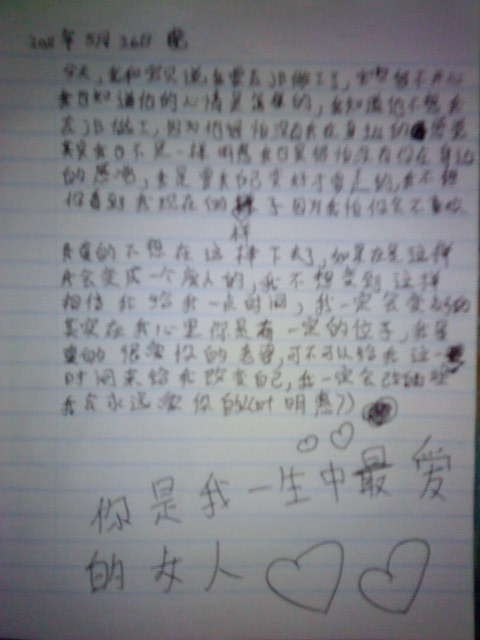 2011年5月26日 晚
今天,我和宝贝说我要去JB做工了,宝贝很不开心
我知道他的心情是怎样的,我知道他不想我
去JB做工,因为他很怕没有我在身边的感觉
其实我不是一样吗 我很怕没有你在身边
的感觉,我是要我自己变好才
你看到我现在的样子因为我怕你会不要我
我真的不想在这样下去了,如果在是这样
我会变成一个废人的,我不想变到这样
相信我给我一点时间,我一定会变好的
其实在我心里你是有一定的位子,我是
真的很爱你的老婆,可不可以给我这一
时间来给我改变自己,我一定会改的
我会永远爱你的
你是我一生中最爱
的女人